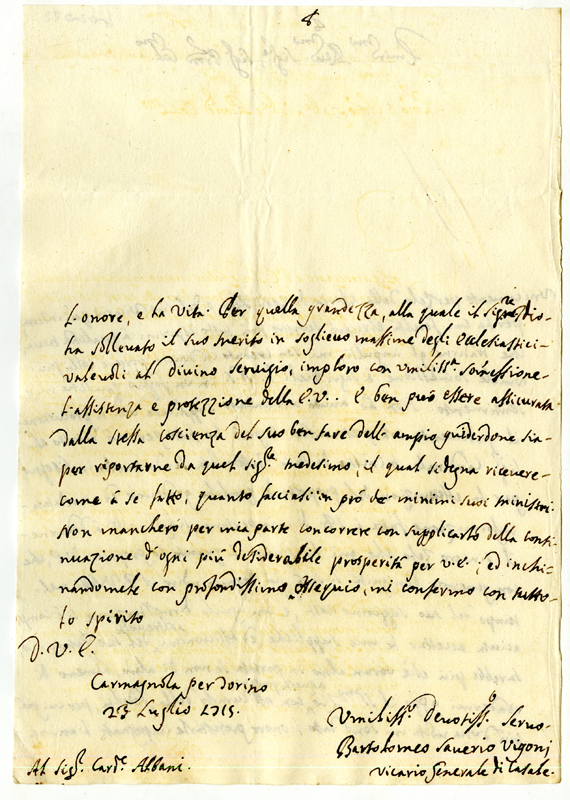 l'onore, e la vita. Per quella grandezza, alla quale il sig.re Dio
ha sollevato il suo merito in soglievo massime degli ecclesiastici
valevoli al divino servigio, imploro con umiliss.a somessione
l'assistenza e protezzione della E.V.. E ben può essere assicurata
dalla stessa coscienza del suo ben fare dell'ampio guiderdone sia
per riportarne da quel sig.re medesimo, il qual si degna ricevere
come à se fatto, quanto facciasi in prò de minimi suoi ministri.
Non mancherò per mia parte concorrere con supplicarlo della conti-
nuazione d'ogni più desiderabile prosperità per V.E.; ed inchi-
nandomele con profondissimo ossequio, mi confermo con tutto
lo spirito
D. V. E.
Carmagnola per Torino
23 Luglio 1715.
Umiliss.o Devotiss.o Servo
Bartolomeo Saverio Vigoni
Vicario Generale di Casale.
Al Sig.r Card.e Albani.